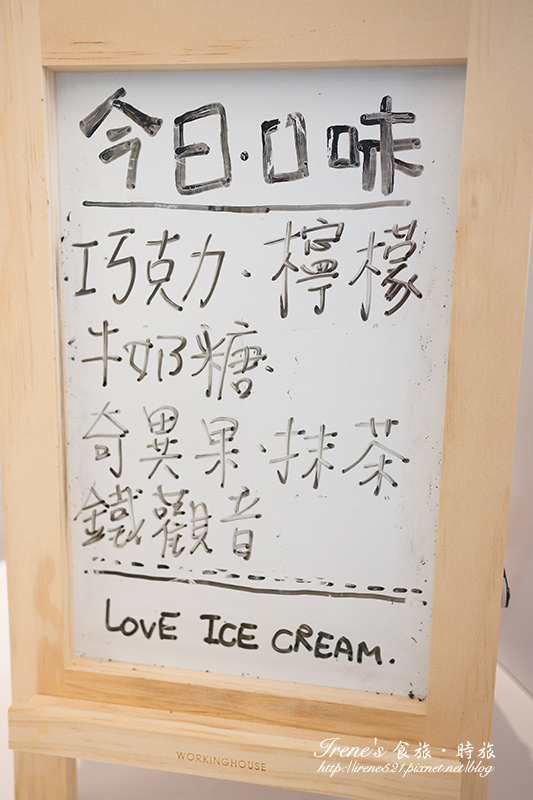 今日·口味
巧克力·檸檬
牛奶糖
奇異果·抹茶
鐵觀音
LOVE ICE CREAM.
WORKINGHOUSE
Irene's 食旅·時旅
http://irene521.pixnet.net/blog